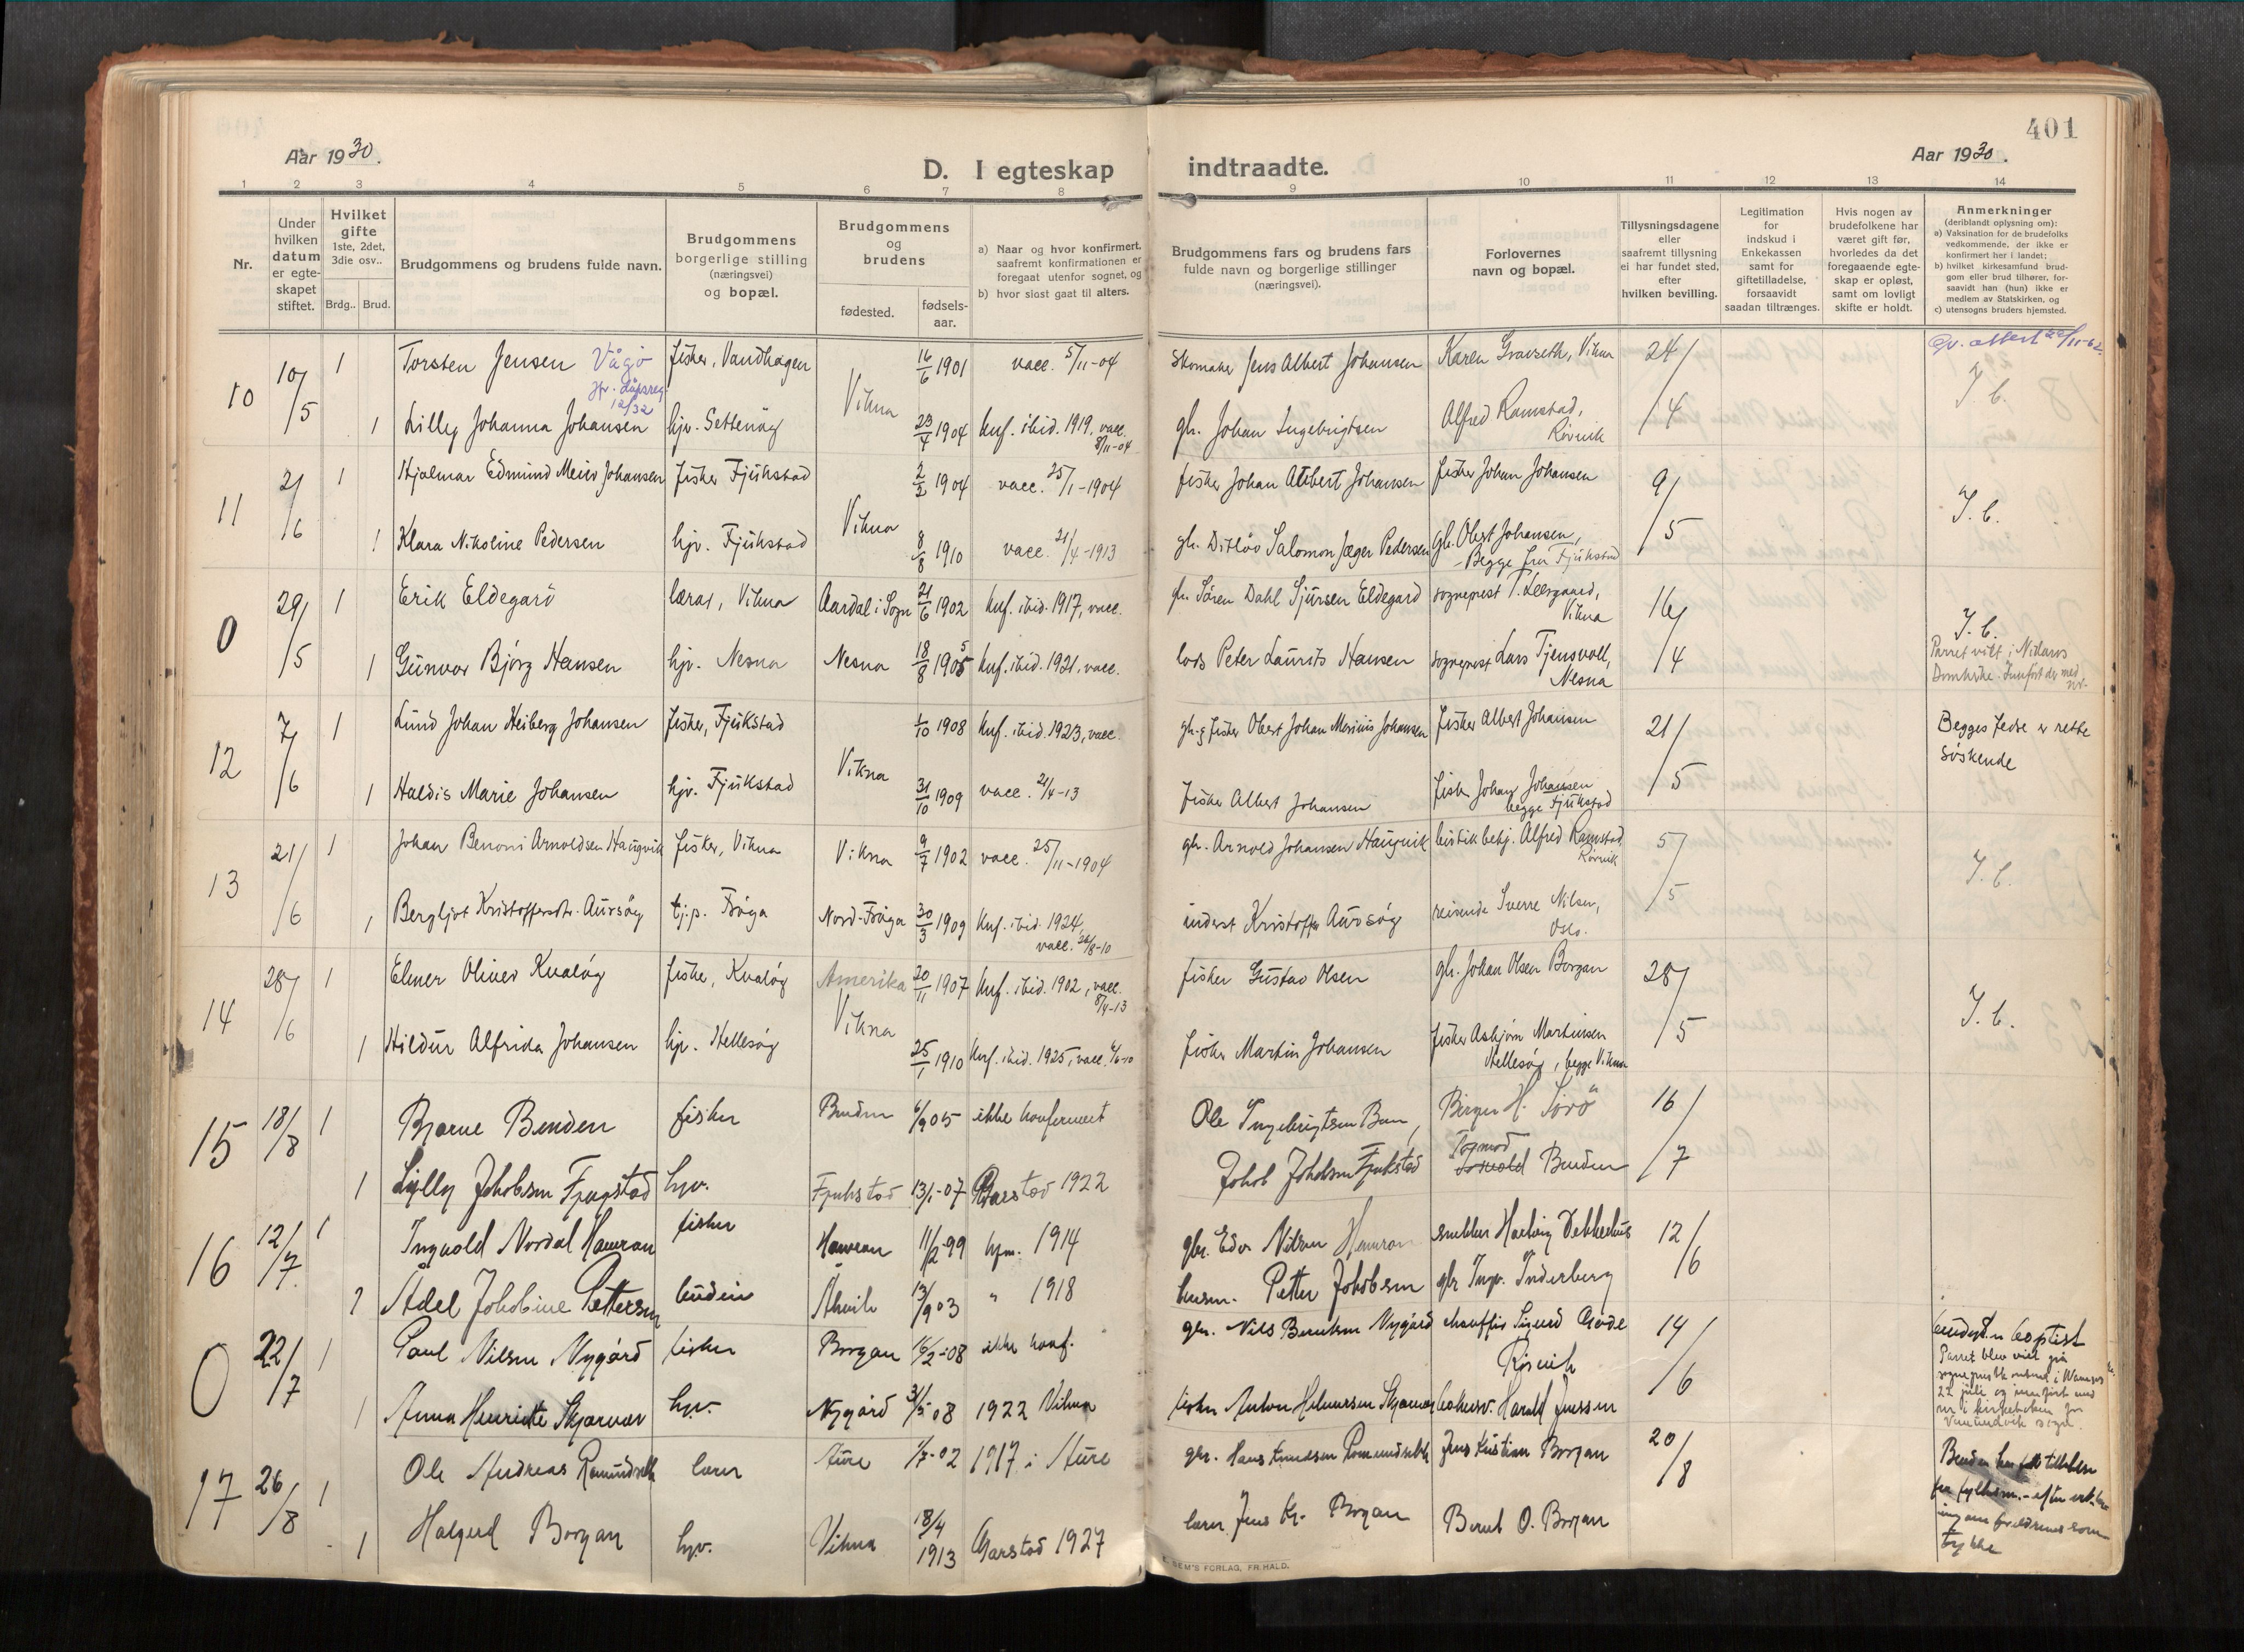 401
Aar 1930.
Aar 1930.
D. I egteskap indtraadte.
1 2 3 4 5 6 7 8 9 10 11 12 13 14
Nr.
Under hvilken datum er egteskapet stiftet.
Hvilket gifte 1ste, 2det, 3die osv..
Brdg.. Brud.
Brudgommens og brudens fulde navn.
Brudgommens borgerlige stilling (næringsvei) og bopæl.
Brudgommens og brudens
fødested. fødselsaar.
a) Naar og hvor konfirmert, saafremt konfirmationen er foregaat utenfor sognet, og
b) hvor sidst gaat til alters.
Brudgommens fars og brudens fars fulde navn og borgerlige stillinger (næringsvei).
Forlovernes navn og bopæl.
Tillysningsdagene eller saafremt tillysning ei har fundet sted, efter hvilken bevilling.
Legitimation for indskud i Enkekassen samt for giftetilladelse, forsaavidt saadan tiltrænges.
Hvis nogen av brudefolkene har været gift før, hvorledes da det foregaaende egteskap er opløst, samt om lovligt skifte er holdt.
Anmerkninger
(deriblandt oplysning om):
a) Vaksination for de brudefolks vedkommende, der ikke er konfirmert her i landet;
b) hvilket kirkesamfund brudgom eller brud tilhører, forsaavidt han (hun) ikke er medlem av Statskirken, og
c) utensogns bruders hjemsted.
10 10/5 1 Torsten Jensen Vågö fisker, Vandhagen 16/6 1901 vacc. 5/11-04 Skomaker Jens Albert Johansen Karen Gravseth, Vikna 24/4
12/32
1 Lilly Johanna Johansen hjv. Setternøy Vikna 23/4 1904 Knf. ibid. 1919, vacc. 8/11-04 gb. Johan Ingebrigtsen Alfred Ramstad, Rörvik I. b.
11 2/6 1 Hjalmar Edmund Meier Johansen fisker Fjukstad 2/2 1904 vacc. 25/1-1904 fisker Johan Albert Johansen fisker Johan Johansen 9/5
1 Klara Nikoline Pedersen hjv. Fjukstad Vikna 8/8 1910 vacc. 21/4-1913 gb. Ditløv Salomon Jæger Pedersen gb. Obert Johansen, - Begge fra Fjukstad I. b.
0 29/5 1 Erik Eldegard lærer, Vikna Aardal i Sogn 21/6 1902 Knf. ibid. 1917, vacc. gb. Sören Dahl Sjursen Eldegard sogneprest T. Leergaard, Vikna 16/4
1 Gunvor Bjørg Hansen hjv. Nesna Nesna 18/8 1905 Knf. ibid. 1921, vacc. lods Peter Laurits Hansen sogneprest Lars Tjensvoll, Nesna I. b.
Parret viet i Nidaros Domkirke. Innfört der med nr.
12 7/6 1 Lund Johan Heiberg Johansen fisker, Fjukstad 1/10 1908 Knf. ibid. 1923, vacc. gb. g fisker Obert Johan Marinius Johansen fisker Albert Johansen 21/5
1 Haldis Marie Johansen hjv. Fjukstad Vikna 31/10 1909 vacc. 21/4-13 fisker Albert Johansen fisker Johan Johansen begge Fjukstad
Begges fedre er rette söskende
13 21/6 1 Johan Benoni Arnoldsen Haugvik fisker, Vikna Vikna 9/7 1902 vacc. 25/11-1904 gb. Arnold Johansen Haugvik Alfred Ramstad Rörvik 5/5
1 Bergljot Kristoffersdtr. Aursøy tj.p. Frøya Nord-Frøya 30/3 1909 Knf. ibid. 1924, vacc. 26/8-10 inderst Kristoffer Aursøy reisende Sverre Nilsen, Oslo. I. b.
14 28/6 1 Elmer Oliver Kvaløy fisker, Kvaløy Amerika 20/11 1907 Knf. ibid. 1902, vacc. 8/4-13 fisker Gustav Olsen gb. Johan Olsen Borgan 28/5
1 Hildur Alfrida Johansen hjv. Hellesøy Vikna 25/1 1910 Knf. ibid. 1925, vacc. fisker Martin Johansen fisker Asbjørn Martinsen Hellesøy, begge Vikna I. b.
15 18/8 1 Bjarne Benden fisker 6/9 05 ikke konfermert Ole Ingebrigtsen Birger H. Sörö 16/7
1 Lylly Jakobsen Fjugstad hjv. Fjukstad 13/1-07 Garstad 1922 Jakob Jakobsen Fjukstad Tormod Benden
16 12/7 1 Ingvald Nordal Hamran fisker Hamran 11/2-99 hjm. 1914 gbr. Edv. Nilsen Hamran snekker Hartvig 12/6
1 Adel Jakobine Pettersen budeie Åkvik 13/9 03 " 1918 husm. Petter Jakobsen gbr Ingv. Inderberg
0 22/7 1 Paul Nilsen Nygård fisker Borgan 16/2-08 ikke konf. gbr. Nils Nygård chauffør Sigurd Rörvik 14/6
1 Anna Henriette Skjærvær hjv. Nygård 31/5 08 1922 Vikna fisker Anton Skjærvær Harald Jenssen
Parret blev viet på 22 juli og innført med nr i kirkeboken for sogn.
17 26/8 1 Ole Andreas Romundset lærer Aure 1/7-02 1917 i Aure gbr. Hans Knudsen Romundset Jens Kristian Borgan 20/8
1 Halgerd Borgan hjv. Vikna 18/4 1913 Garstad 1927 lærer Jens Kr. Borgan Bernt O. Borgan
SEM'S FORLAG, FR.HALD.